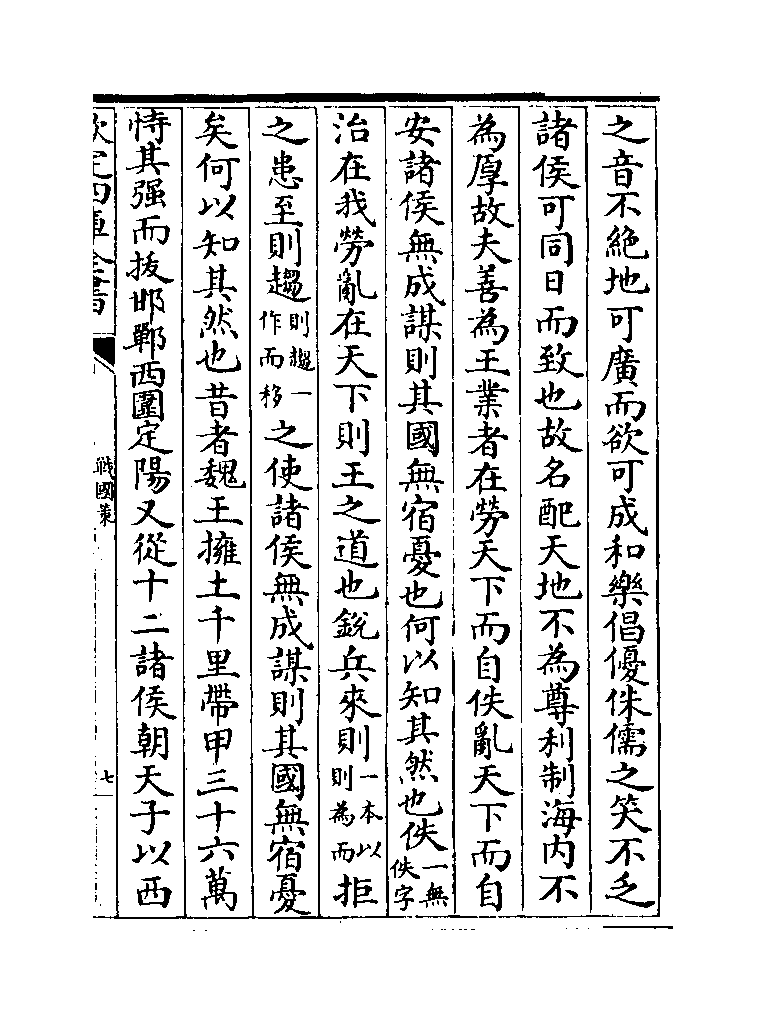 之音不絶地可廣而欲可成和樂倡優侏儒之笑不乏
諸侯可同日而致也故名配天地不為尊利制海内不
為厚故夫善為王業者在勞天下而自佚亂天下而自
安諸侯無成謀則其國無宿憂也何以知其然也佚一無佚字
治在我勞亂在天下則王之道也銳兵來則一本以則為而拒
之患至則趨則趨一作而移之使諸侯無成謀則其國無宿憂
矣何以知其然也昔者魏王擁土千里帶甲三十六萬
恃其强而拔邯鄲西圍定陽又從十二諸侯朝天子以西
欽定四庫全書
戰國策
七